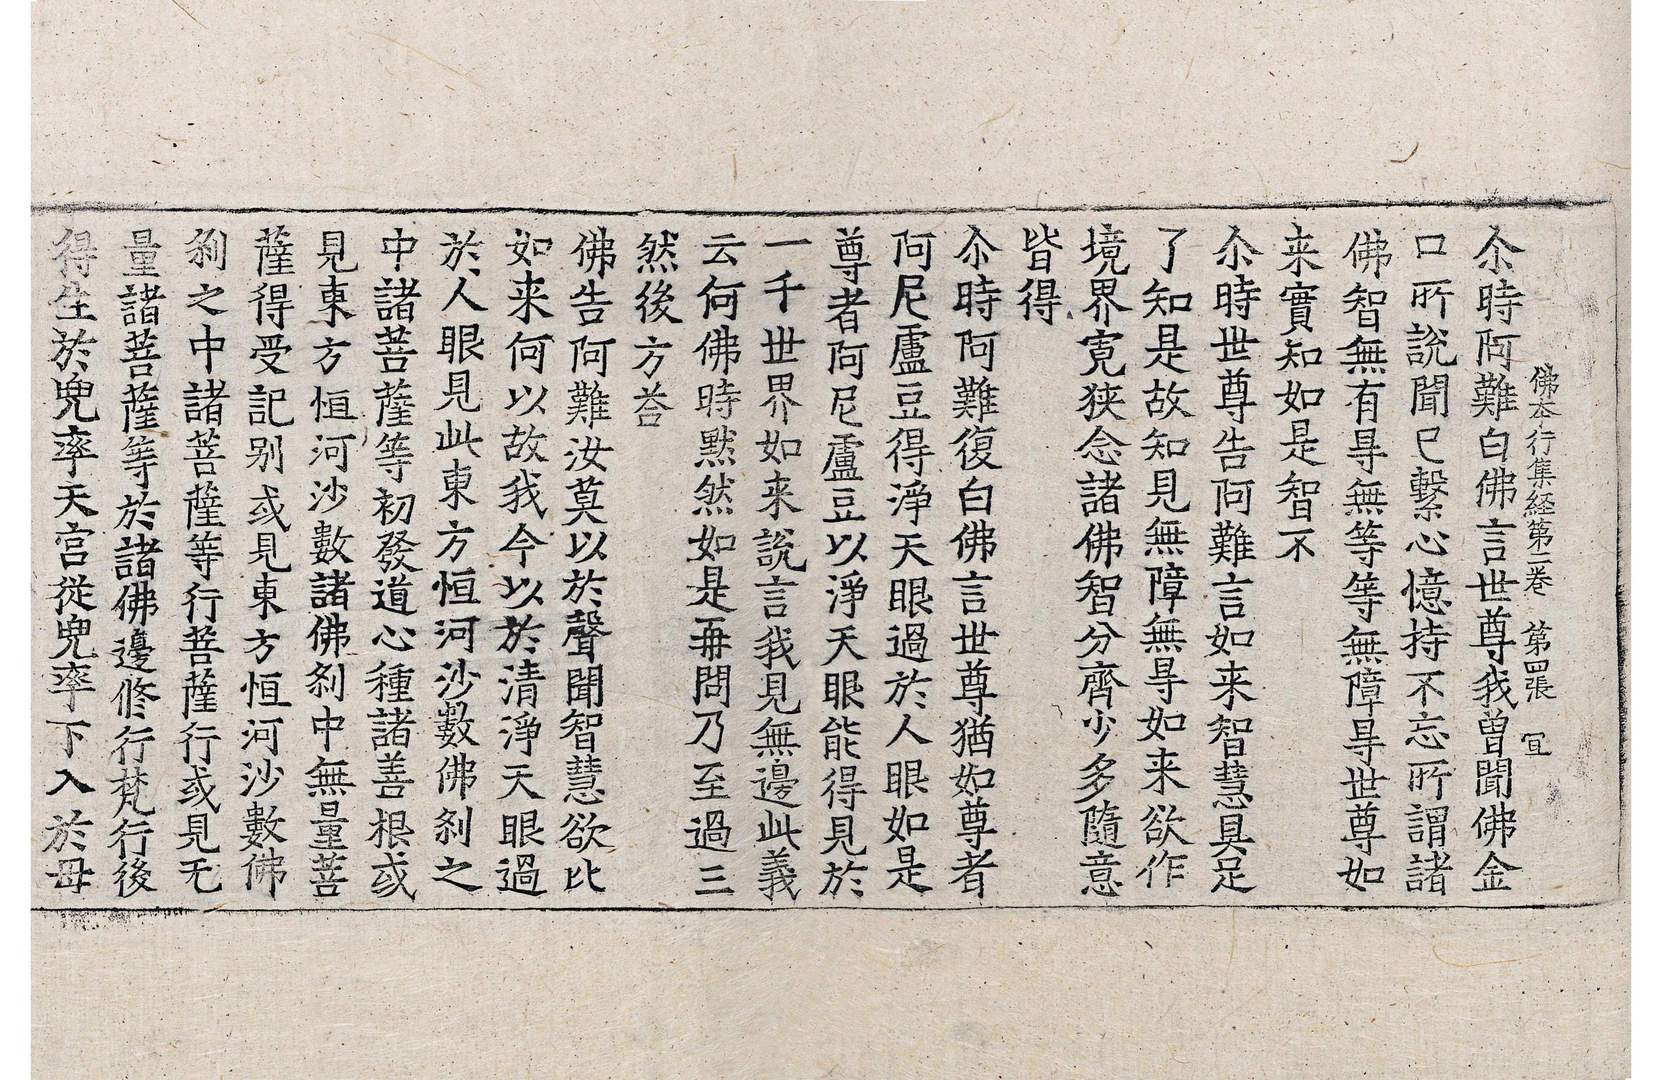 佛本行集経第二卷　第四張　冝
尒時阿難白佛言世尊我曽聞佛金
口所說聞已繫心憶持不忘所謂諸
佛智無有㝵無等等無障㝵世尊如
来實知如是智不
尒時世尊告阿難言如来智慧具足
了知是故知見無障無㝵如来欲作
境界寛狹念諸佛智分齊少多隨意
皆得
尒時阿難復白佛言世尊猶如尊者
阿尼盧豆得淨天眼過於人眼如是
尊者阿尼盧豆以淨天眼能得見於
一千世界如来說言我見無邊此義
云何佛時黙然如是再問乃至過三
然後方荅
佛告阿難汝莫以於聲聞智慧欲比
如来何以故我今以於清淨天眼過
於人眼見此東方恒河沙數佛刹之
中諸菩薩等初發道心種諸善根或
見東方恒河沙數諸佛刹中無量菩
薩得受記别或見東方恒河沙數佛
刹之中諸菩薩等行菩薩行或見无
量諸菩薩等於諸佛邊修行梵行後
得生於兜率天宫従兜率下入於母